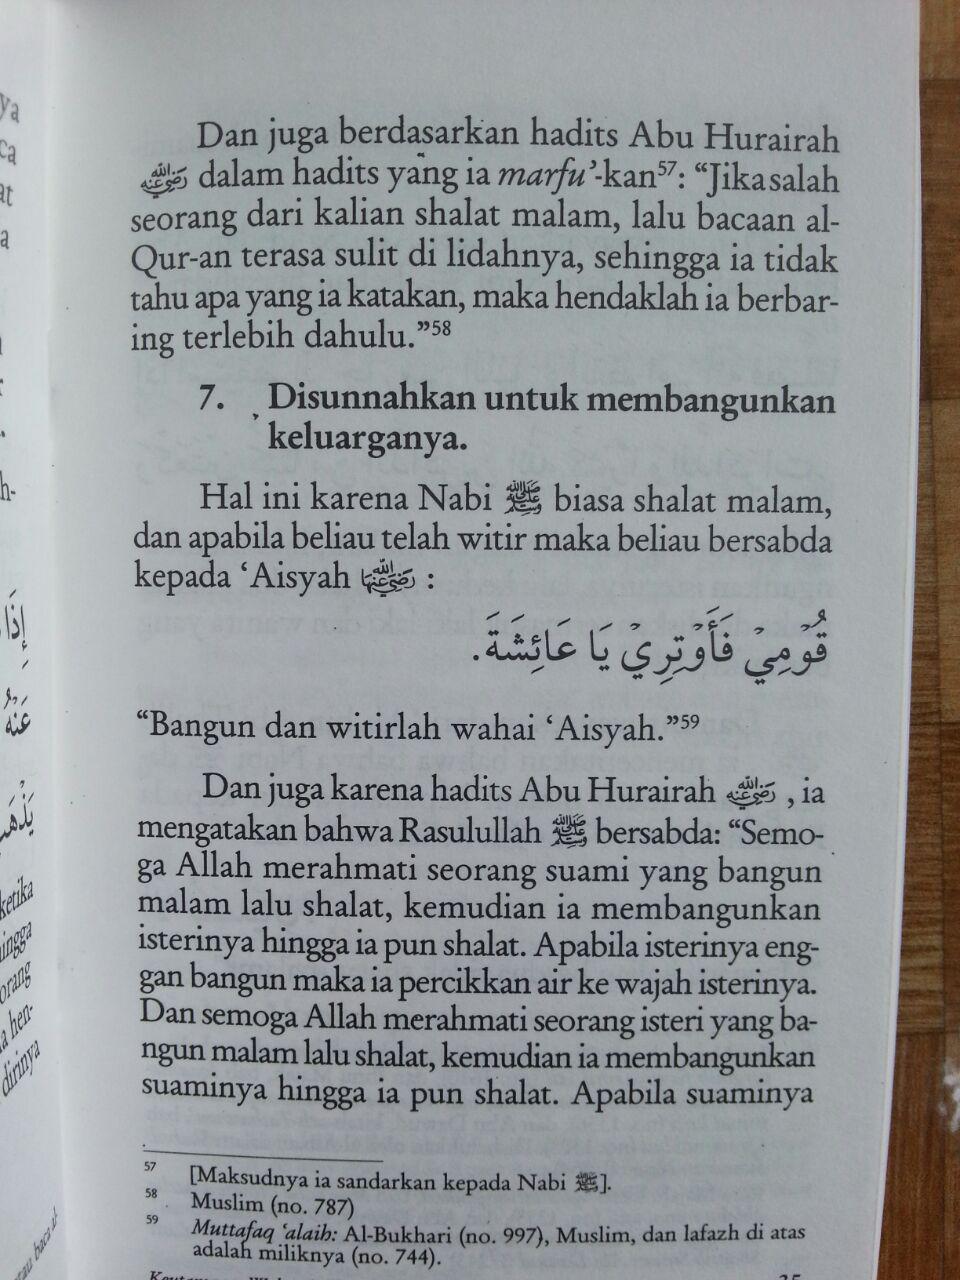 Dan juga berdasarkan hadits Abu Hurairah
رضي الله عنه dalam hadits yang ia marfu’-kan57: “Jika salah
seorang dari kalian shalat malam, lalu bacaan al-
Qur-an terasa sulit di lidahnya, sehingga ia tidak
tahu apa yang ia katakan, maka hendaklah ia berbar-
ing terlebih dahulu.”58
7. Disunnahkan untuk membangunkan
keluarganya.
Hal ini karena Nabi ﷺ biasa shalat malam,
dan apabila beliau telah witir maka beliau bersabda
kepada ‘Aisyah رضي الله عنها :
قُوْمِيْ فَأَوْتِرِيْ يَا عَائِشَةَ.
“Bangun dan witirlah wahai ‘Aisyah.”59
Dan juga karena hadits Abu Hurairah رضي الله عنه , ia
mengatakan bahwa Rasulullah ﷺ bersabda: “Semo-
ga Allah merahmati seorang suami yang bangun
malam lalu shalat, kemudian ia membangunkan
isterinya hingga ia pun shalat. Apabila isterinya eng-
gan bangun maka ia percikkan air ke wajah isterinya.
Dan semoga Allah merahmati seorang isteri yang ba-
ngun malam lalu shalat, kemudian ia membangunkan
suaminya hingga ia pun shalat. Apabila suaminya
57 [Maksudnya ia sandarkan kepada Nabi ﷺ].
58 Muslim (no. 787)
59 Muttafaq ‘alaih: Al-Bukhari (no. 997), Muslim, dan lafazh di atas
adalah miliknya (no. 744).